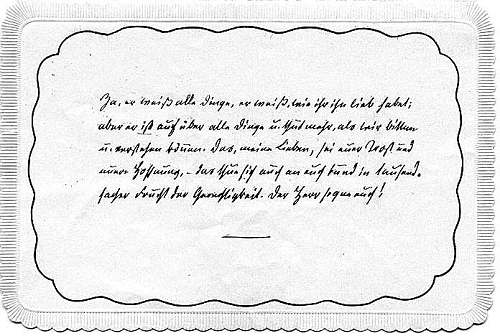 Ja, er weiß alle Dinge, er weiß, wie ihr ihn lieb habet;
aber er ist auch über alle Dinge u. thut mehr, als wir bitten
u. verstehen können. Das, meine Lieben, sei euer Trost und
euere Hoffnung, – das thue sich auch an euch kund in tausend-
facher Frucht der Gerechtigkeit. Der Herr segne euch!